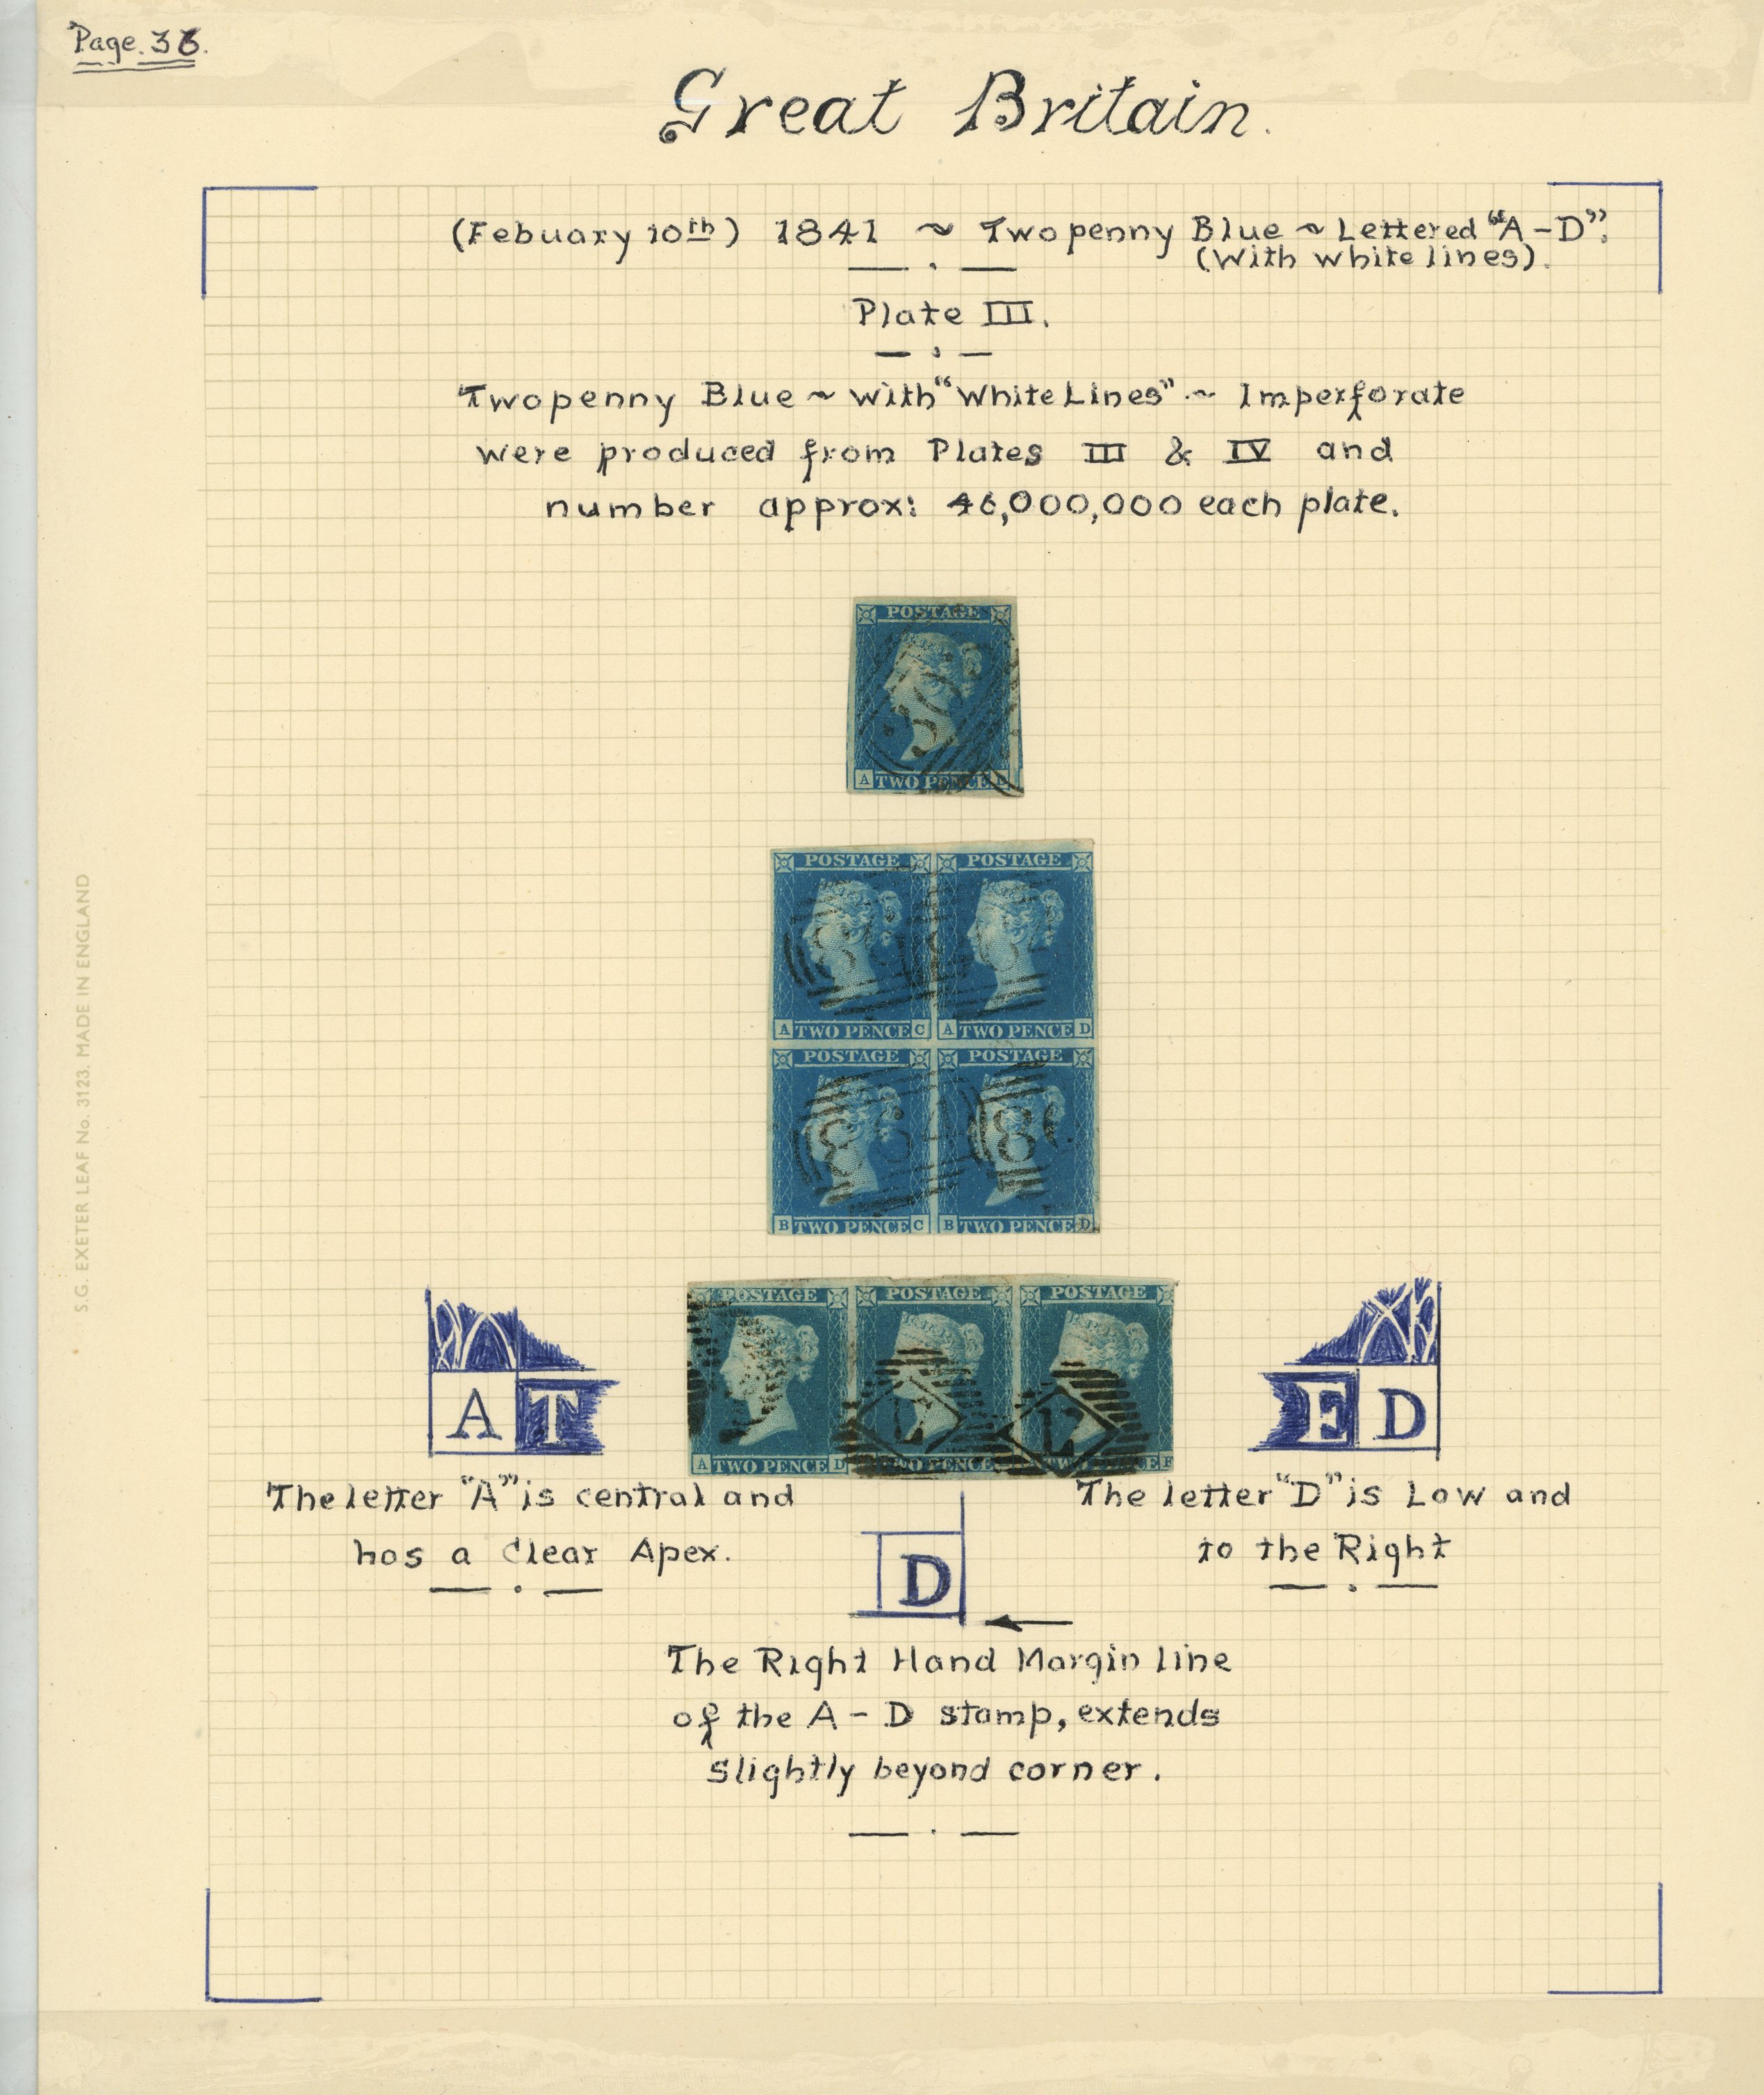 Page. 36.
Great Britain.
(Febuary 10th) 1841 ~ Twopenny Blue ~ Lettered "A-D".
(With white lines).
Plate III.
Twopenny Blue ~ with "White Lines" ~ Imperforate
were produced from Plates III & IV and
number approx: 46,000,000 each plate.
POSTAGE
A TWO PENCE
POSTAGE POSTAGE
A TWO PENCE C A TWO PENCE D
POSTAGE POSTAGE
B TWO PENCE C B TWO PENCE D
POSTAGE POSTAGE POSTAGE
A TWO PENCE D TWO PENCE
A T
E D
The letter "A" is central and
has a Clear Apex.
The letter "D" is Low and
to the Right
D
The Right Hand Margin line
of the A - D stamp, extends
slightly beyond corner.
S.G. EXETER LEAF No. 3123. MADE IN ENGLAND